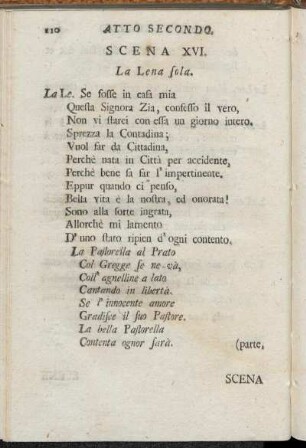 110 ATTO SECONDO.
SCENA XVI.
La Lena ſola.
La Le. Se foſſe in caſa mia
Queſta Signora Zia, confeſſo il vero,
Non vi ſtarei con eſſa un giorno intero.
Sprezza la Contadina;
Vuol far da Cittadina,
Perchè nata in Città per accidente,
Perchè bene ſa far l'impertinente.
Eppur quando ci penſo,
Bella vita è la noſtra, ed onorata!
Sono alla ſorte ingrata,
Allorchè mi lamento
D'uno ſtato ripien d'ogni contento.
La Paſtorella al Prato
Col Gregge ſe ne và,
Coll' agnelline a lato
Cantando in libertà.
Se l'innocente amore
Gradiſce il ſuo Paſtore.
La bella Paſtorella
Contenta ognor ſarà. (parte.
SCENA